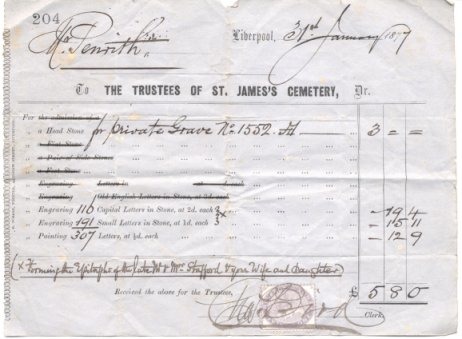 204
Mr Penrith Liverpool, 31st January 1877
To THE TRUSTEES OF ST. JAMES'S CEMETERY, Dr.
For the
a Head Stone for private Grave No. 1552. A 3 = =
a Foot Stone
a Pair of Side Stones
a Flat Stone
Engraving Letters in at d. each
Engraving Old English Letters in Stone, at 3d. each
Engraving 116 Capital Letters in Stone, at 2d. each x - 19 4
Engraving 191 Small Letters in Stone, at 1d. each - 15 11
Painting 307 Letters, at ½d. each - 12 9
(x Forming the Epitaphs of the late Mr & Mrs Strafford & your Wife and Daughter)
Received the above for the Trustees, £ 5 8 0
Clerk.